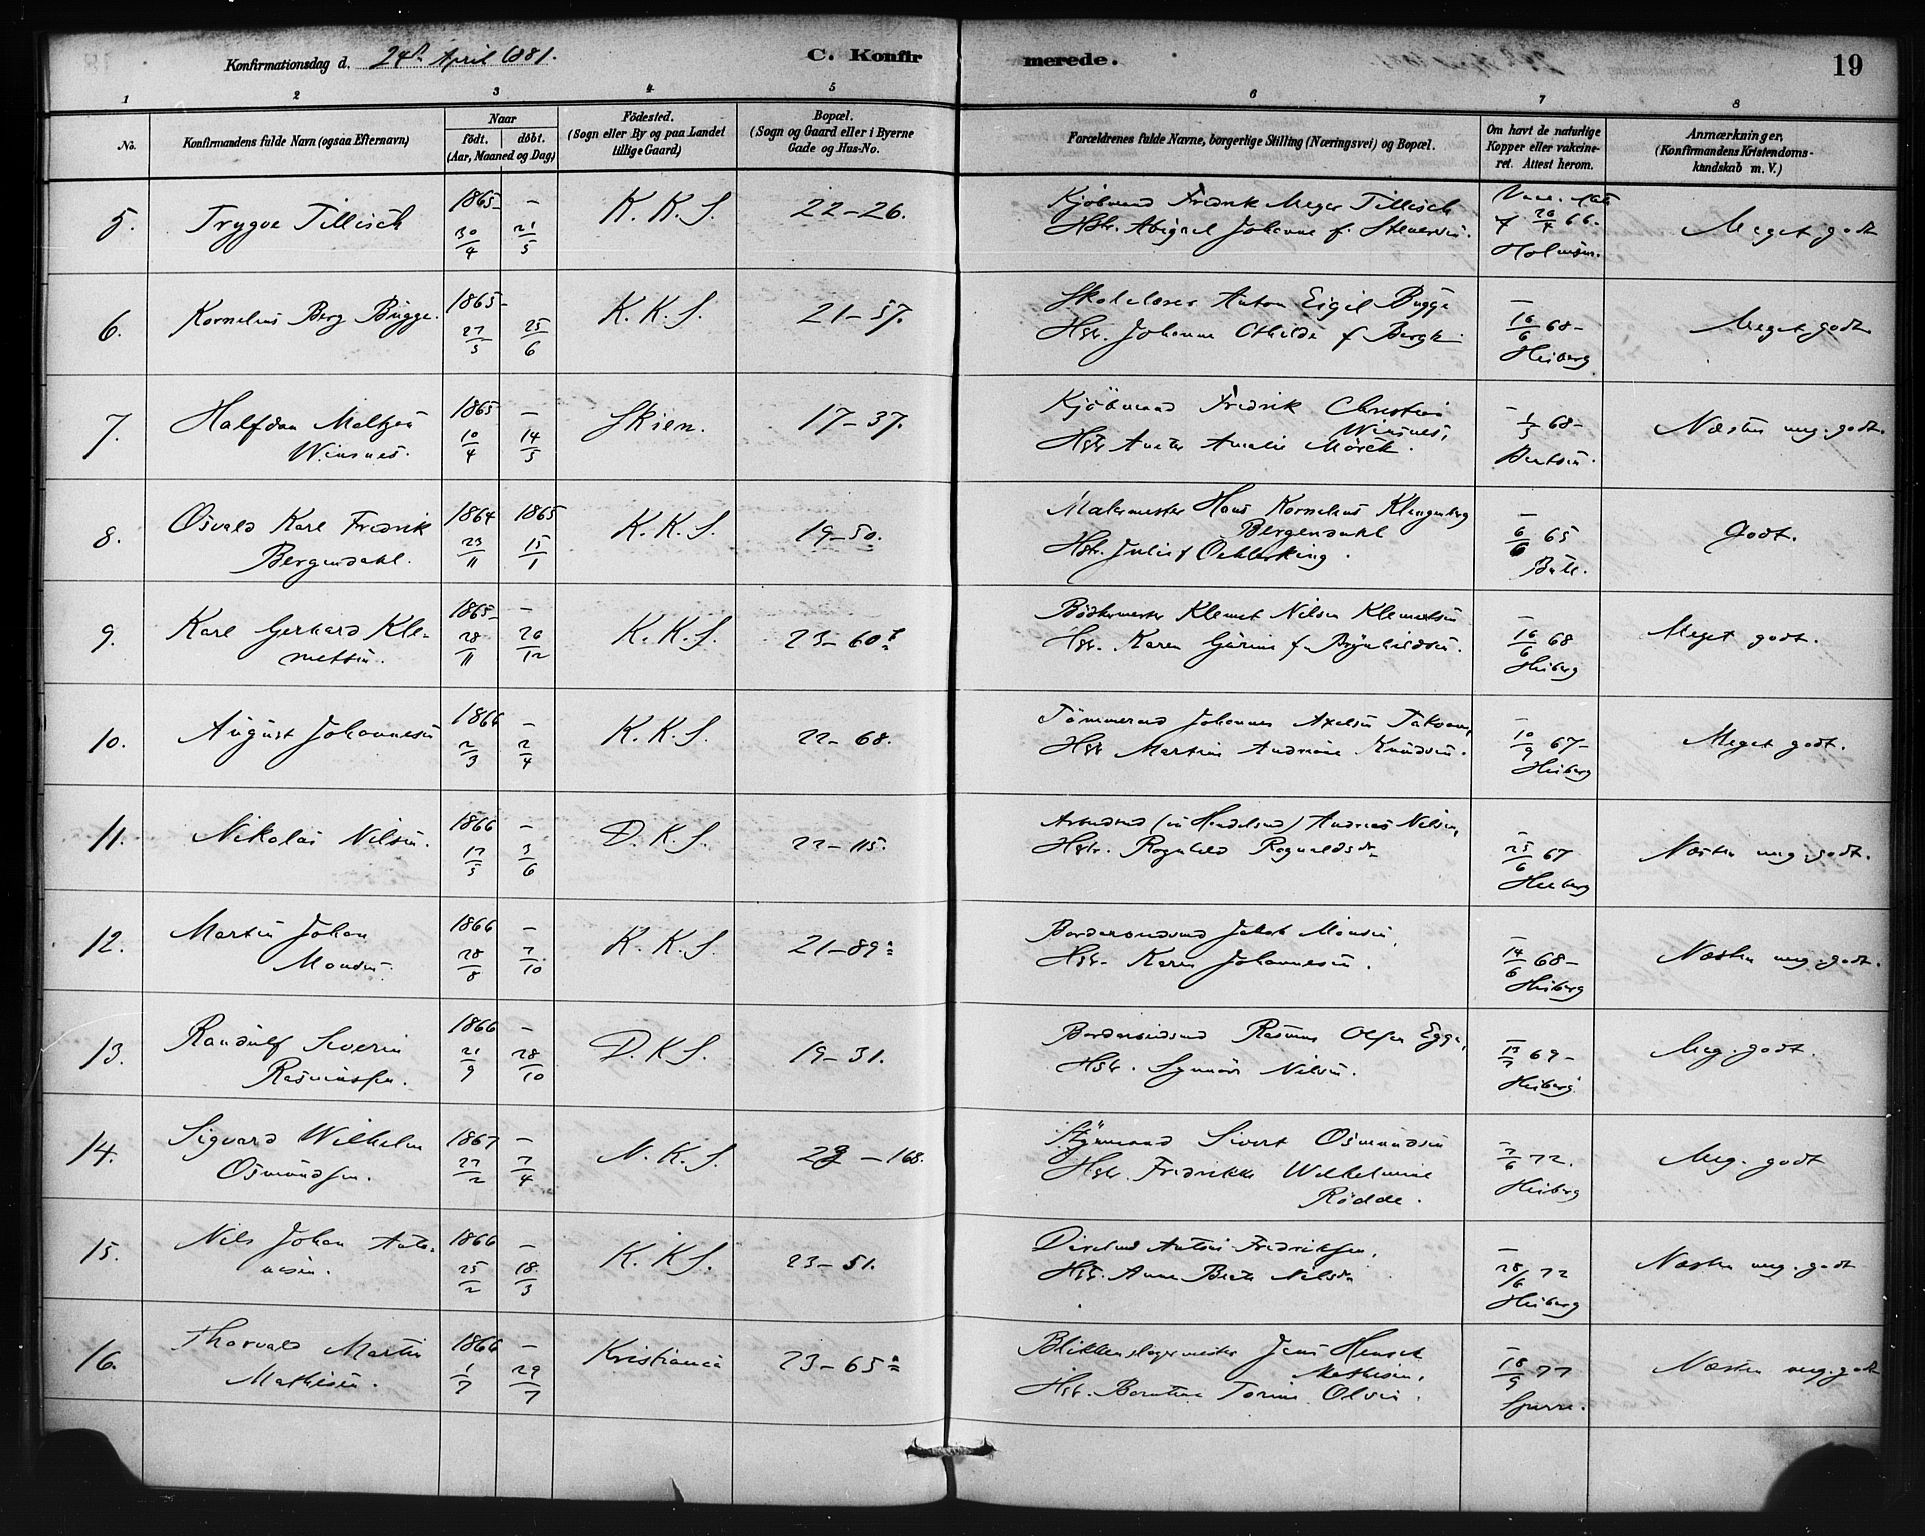 Konfirmationsdag d. 24de April 1881.
C. Konfirmerede.
19
1 2 3 4 5 6 7 8
No.
Konfirmandens fulde Navn (ogsaa Efternavn)
Naar
födt. döbt.
(Aar, Maaned og Dag)
Födested.
(Sogn eller By og paa Landet
tillige Gaard)
Bopæl.
(Sogn og Gaard eller i Byerne
Gade og Hus-No.
Forældrenes fulde Navne, borgerlige Stilling (Næringsvei) og Bopæl.
Om havt de naturlige
Kopper eller vakcine-
ret. Attest herom.
Anmærkninger,
(Konfirmandens Kristendoms-
kundskab m. V.)
5. Trygve Tillisch 1865 30/4 – 21/5 K. K. S. 22–26.
Kjöbmand Fredrik Meyer Tillisch
Hstr. Abigael Johanne f.
26/4 66. Holmsen.
Meget godt
6. Kornelius Berg Bugge. 1865 27/5 25/6 K. K. S. 21–57.
Skolelærer Anton Eigil Bugge
Hstr. Johanne Othilde f
– 16/6 68– Heiberg
Meget godt
7. Halfdan Meltzer
Winsnes. 1865 10/4 – 14/5 Skien. 17–37.
Kjöbmand Fredrik Christian
Winsnes,
Hstr Anette Amalie Mörck.
– 1/5 68–
Næsten meg. godt.
8. Osvald Karl Fredrik
Bergendahl. 1864 23/11 1865 15/1 K. K. S. 19–50.
Malermester Hans Kornelius Klengenberg
Bergendahl
Hstr. Julie f
– 6/6 65 Bull.
Godt.
9. Karl Gerhard Kle-
metsen. 1865 28/11 – 26/12 K. K. S. 23–60
Bödkermester Klemet Nilsen Klemetsen
Hstr. Karen f Brynhildsen.
– 16/6 68 Heiberg
Meget godt.
10. August Johannesen 1866 2/3 – 2/4 K. K. S. 22–68.
Tömmermd Johannes Axelsen
Hstr Martine Andrine Knudsen.
– 10/9 67– Heiberg
Meget godt.
11. Nikolai Nilsen. 1866 17/5 – 3/6 D. K. S. 22–115.
Arbeidsmd Andreas Nilsen,
Hstr. Ragnhild Ragnaldsdr
– 25/6 67 Heiberg
Næsten meg. godt.
12. Martin Johan
Monsen. 1866 28/8 – 7/10 K. K. S. 21–89a
Bordarbeidsmd Jakob Monsen,
Hstr. Karen Johannesen.
– 14/6 68– Heiberg
Næsten meg. godt.
13. Randulf Severin
Rasmussen. 1866 21/9 – 28/10 D. K S. 19–31.
Bordarbeidsmd Rasmus Olsen Egge,
Hstr. Synnöve Nilsen.
– 13/7 69– Heiberg
Meg. godt.
14. Sigvard Wilhelm
Osmundsen. 1867 27/2 – 7/4 N. K. S. –168.
Styrmand Sivert Osmundsen
Hstr. Fredrikke Wilhelmine
Rödde.
– 7/6 72. Heiberg
Meg. godt
15. Nils Johan Anto-
nisen. 1866 25/2 – 18/3 K. K S. 23–51.
Antoni Fredriksen,
Hstr. Anne Berte Nilsdr
– 28/6 72 Heiberg
Næsten meg. godt
16. Thorvald Martin
Mathisen. 1866 1/7 – 29/7 Kristiania 23–65a
Blikkenslagermester Jens Hensch
Mathisen,
Hstr. Berntine Olsen.
– 18/9 77
Næsten meg. godt